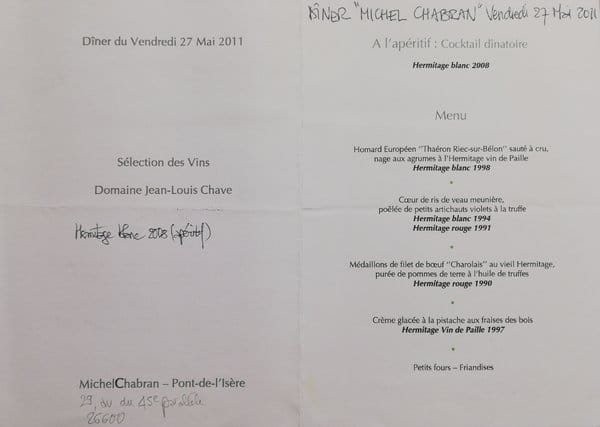 Dîner du Vendredi 27 Mai 2011
Sélection des Vins
Domaine Jean-Louis Chave
Hermitage blanc 2008 (apéritif)
MichelChabran – Pont-de-l'Isère
29, av du 45e parallèle
26600
DÎNER "MICHEL CHABRAN" Vendredi 27 Mai 2011
A l'apéritif : Cocktail dînatoire
Hermitage blanc 2008
Menu
Homard Européen "Thaéron Riec-sur-Bélon" sauté à cru,
nage aux agrumes à l'Hermitage vin de Paille
Hermitage blanc 1998
Cœur de ris de veau meunière,
poêlée de petits artichauts violets à la truffe
Hermitage blanc 1994
Hermitage rouge 1991
Médaillons de filet de bœuf "Charolais" au vieil Hermitage,
purée de pommes de terre à l'huile de truffes
Hermitage rouge 1990
Crème glacée à la pistache aux fraises des bois
Hermitage Vin de Paille 1997
Petits fours – Friandises